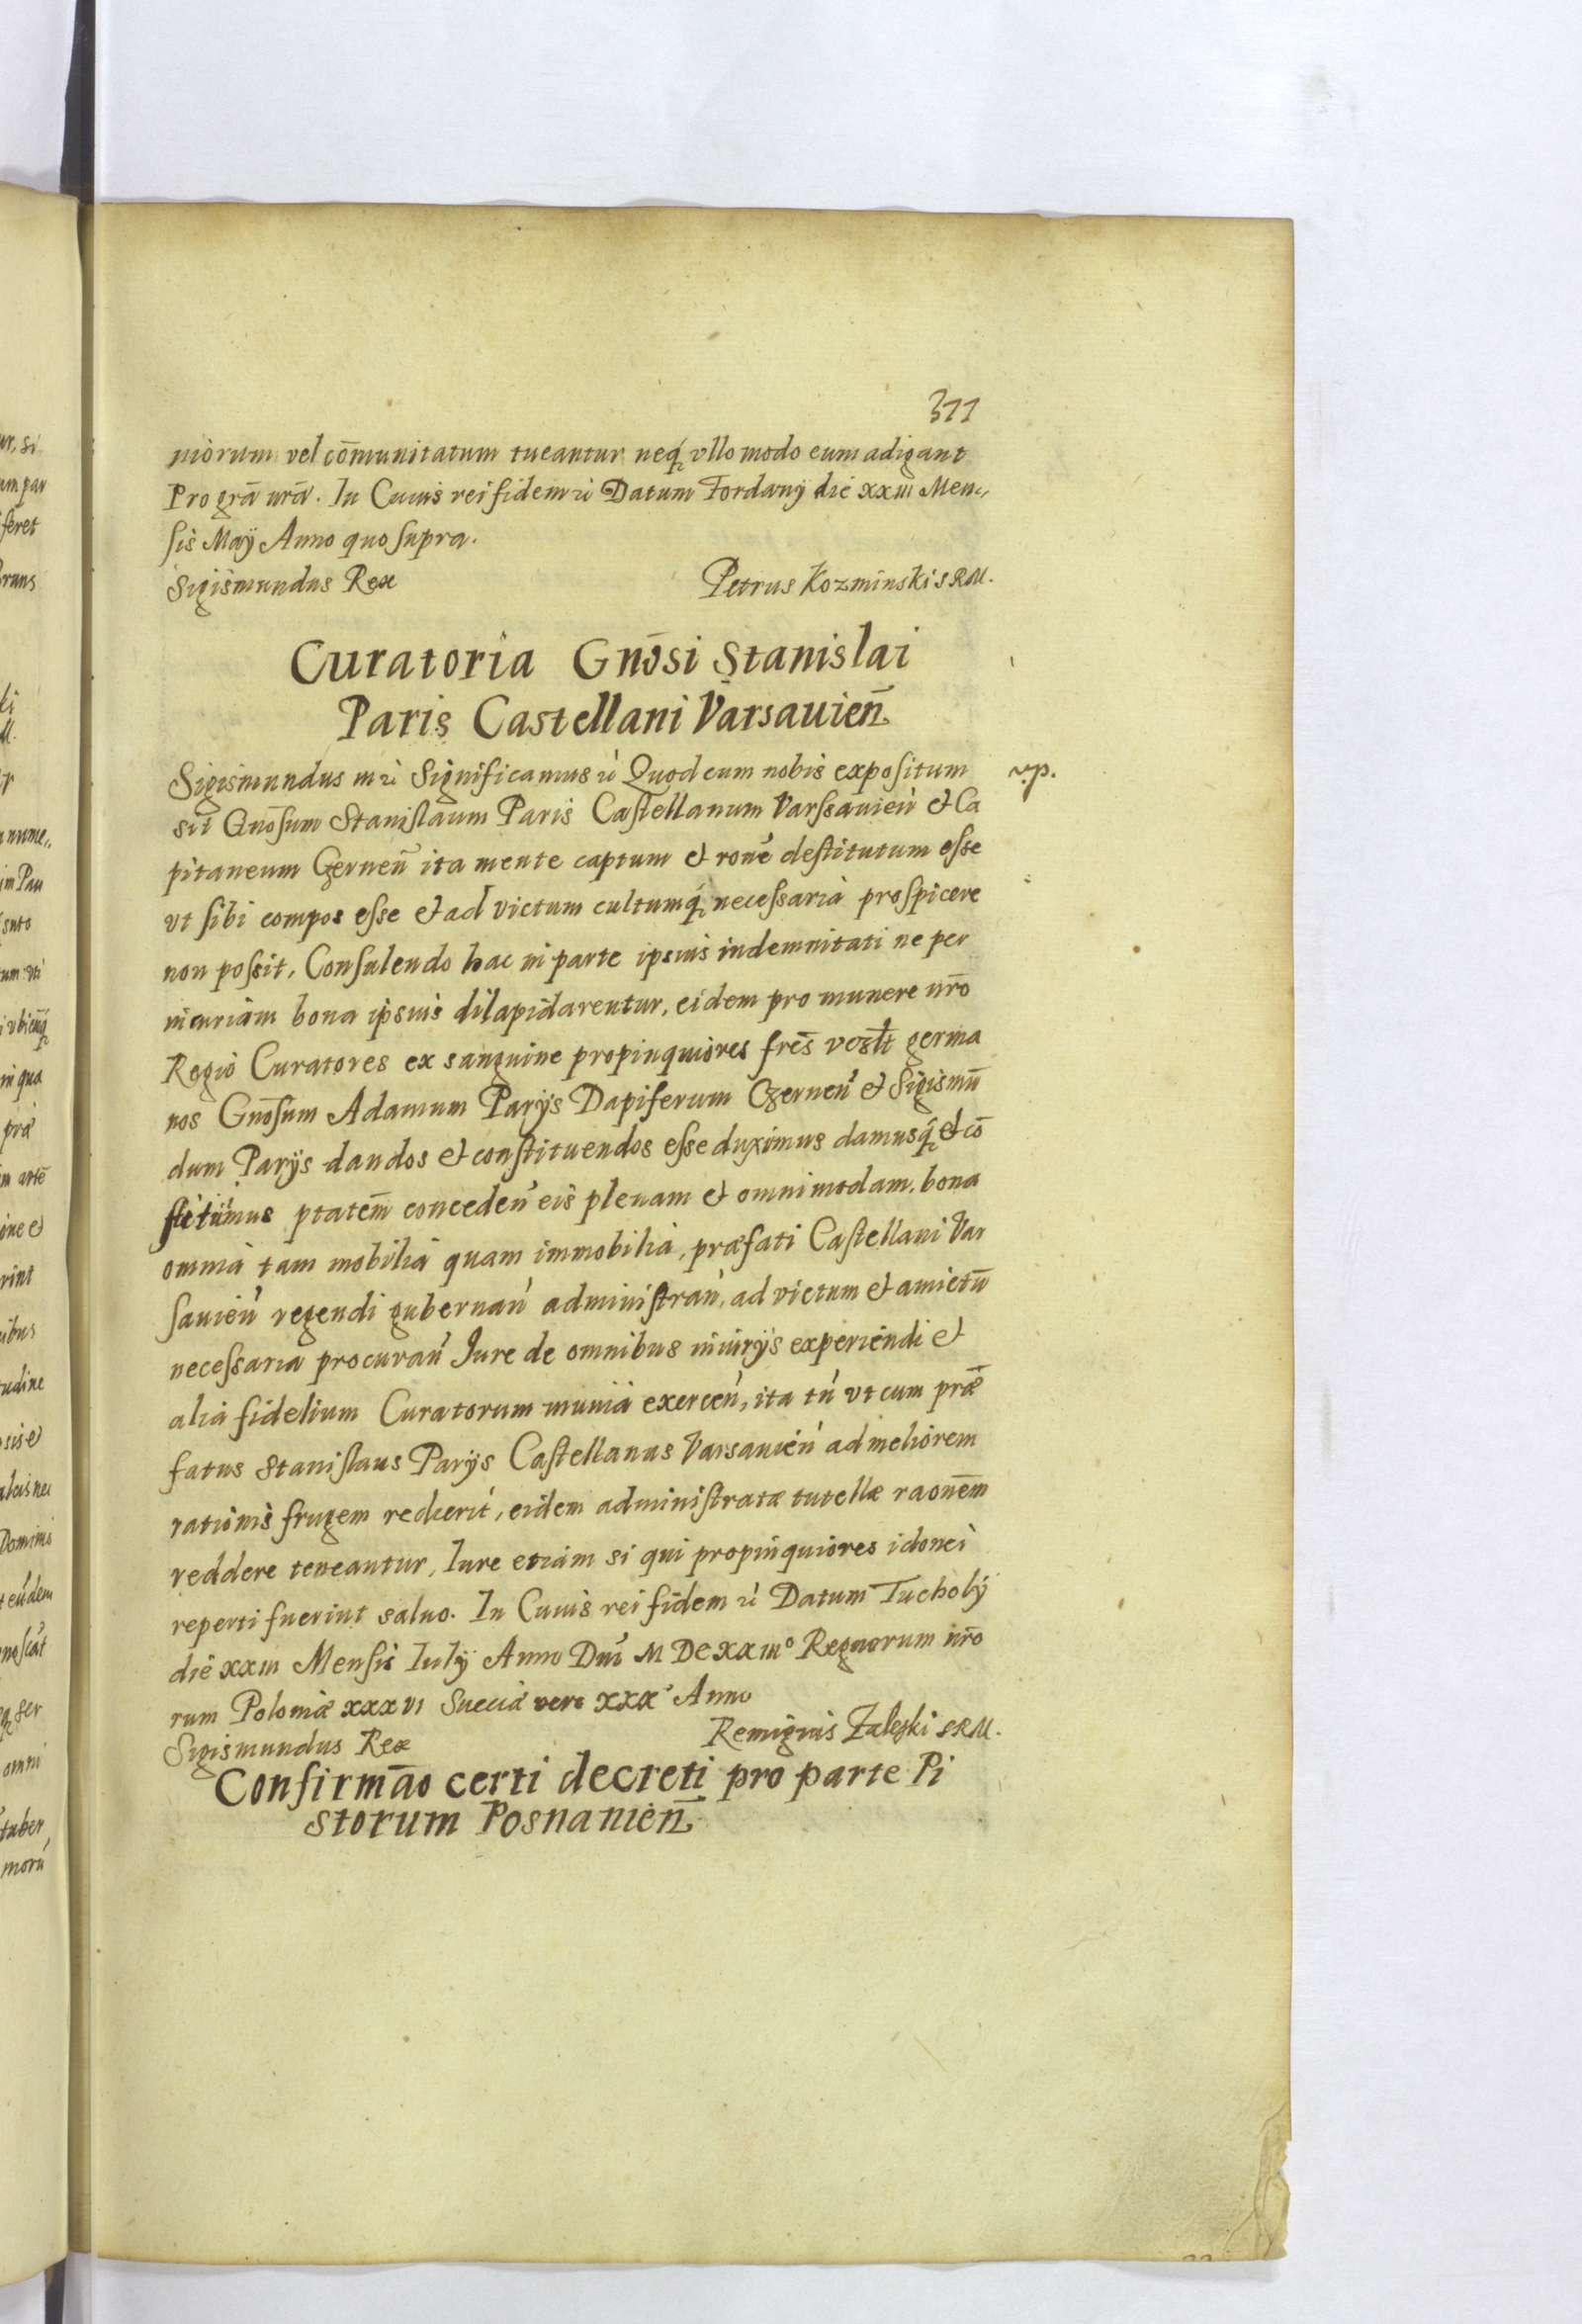 311
niorum vel cōmunitatum tueantur neq́ vllo modo eum adigant
Pro grā nrā. In Cuius rei fidem Datum Fordany die XXIII Men„
sis Maÿ Anno quo supra.
Sigismundus Rex
Petrus Kozminski SRM.
Curatoria Gnōsi Stanislai
Paris Castellani Varsauien̄
Sigismundus Significamus Quod cum nobis expositum
v.p.
sit Gnōsum Stanislaum Paris Castellanum Varssauień et Ca
pitaneum Czerneń ita mente captum et roné destitutum esse
vt sibi compos esse et ad victum cultumq́ necessaria prospicere
non possit, Consulendo hac in parte ipsius indemnitati ne per
incuriam bona ipsius dilapidarentur, eidem pro munere nr̄o
Regio Curatores ex sanguine propinquiores frēs germa
nos Gnōsum Adamum Parÿs Dapiferum Czerneń et Sigismū
dum Parÿs dandos et constituendos esse duximus damusq́ et cō
stituimus ptatem̄ conceden̄ eis plenam et omnimodam, bona
omnia tam mobilia quam immobilia, præfati Castellani Var
sauień regendi guberнań administrań, ad victum et amictū
necessaria procurań Iure de omnibus iniurÿs experiendi et
alia fidelium Curatorum munia exerceń, ita tń vt cum præ
fatus Stanislaus Parÿs Castellanus Varsauień ad meliorem
rationis frugem redierit, eidem administratæ tutellæ raonēm
reddere teneantur, Iure etiam si qui propinquiores idonei
reperti fuerint saluo. In Cuius rei fidem Datum Tucholÿ
die XXIII Mensis Iulÿ Anno Dnī M DC XX III° Regnorum nr̄o
rum Poloniæ XXXVI Sueciæ vero XXX Anno
Sigismundus Rex
Remigius Zaleski SRM.
Confirmāo certi decreti pro parte Pi
storum Posnanien̄